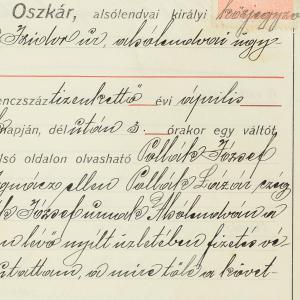 Oszkár, alsólendvai királyi közjegyző
Izidor úr, alsólendvai ügy
enczszáz tizenkettő évi április
napján, délután 3. órakor egy váltót,
lső oldalon olvasható Pollák József
Ignácz ellen Pollák Lázár czég
k József urnak Alsólendván a
n lévő nyílt üzletében fizetés vé-
utattam, a mire tőle a követ-